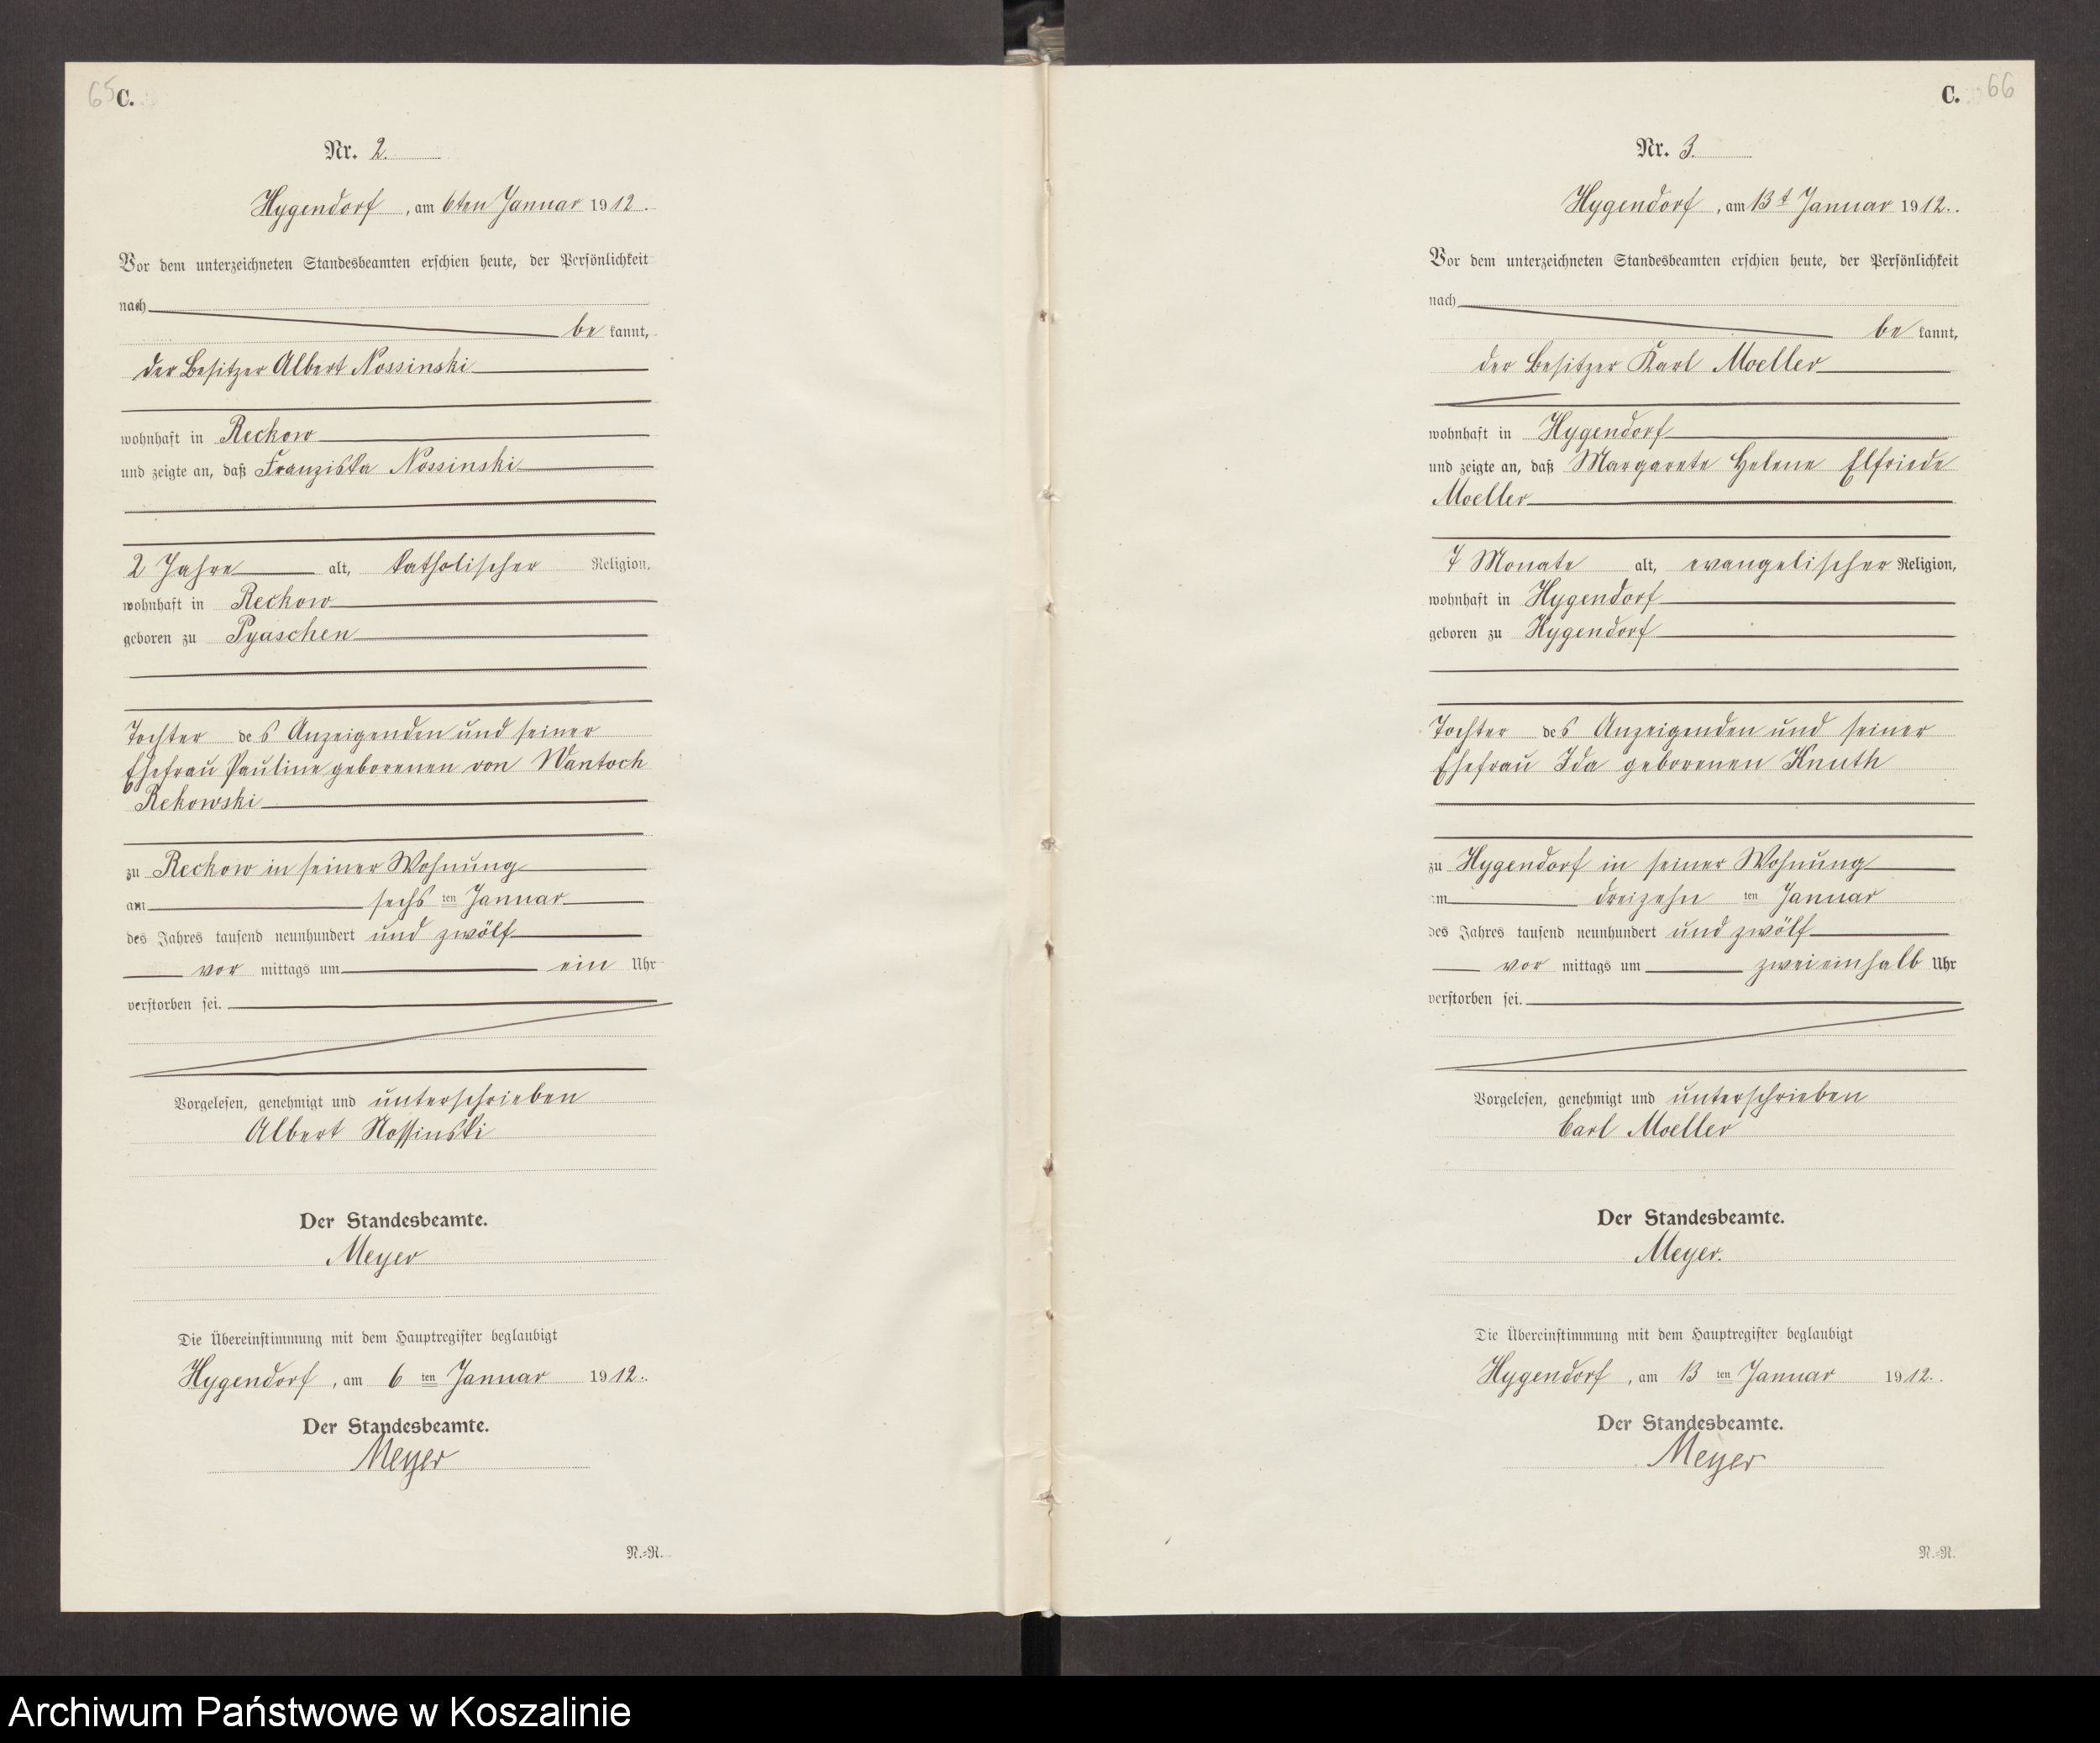 65 C.
Nr. 2.
Hygendorf, am 6ten Januar 1912.
Vor dem unterzeichneten Standesbeamten erschien heute, der Persönlichkeit
nach
be kannt,
der Besitzer Albert Nossinski
wohnhaft in Reckow
und zeigte an, daß Franziska Nossinski
2 Jahre alt, katholischer Religion,
wohnhaft in Reckow
geboren zu Pyaschen
Tochter des Anzeigenden und seiner
Ehefrau Pauline geborenen von Wantoch
Rekowski
zu Reckow in seiner Wohnung
am sechs ten Januar
des Jahres tausend neunhundert und zwölf
vor mittags um ein Uhr
verstorben sei.
Vorgelesen, genehmigt und unterschrieben
Albert Nossinski
Der Standesbeamte.
Meyer
Die Übereinstimmung mit dem Hauptregister beglaubigt
Hygendorf, am 6 ten Januar 1912.
Der Standesbeamte.
Meyer
N.=R.
C. 66
Nr. 3.
Hygendorf, am 13t Januar 1912.
Vor dem unterzeichneten Standesbeamten erschien heute, der Persönlichkeit
nach
be kannt,
der Besitzer Karl Moeller
wohnhaft in Hygendorf
und zeigte an, daß Margarete Helene Elfriede
Moeller
7 Monate alt, evangelischer Religion,
wohnhaft in Hygendorf
geboren zu Hygendorf
Tochter des Anzeigenden und seiner
Ehefrau Ida geborenen Knuth
zu Hygendorf in seiner Wohnung
am dreizehn ten Januar
des Jahres tausend neunhundert und zwölf
vor mittags um zweieinhalb Uhr
verstorben sei.
Vorgelesen, genehmigt und unterschrieben
Carl Moeller
Der Standesbeamte.
Meyer.
Die Übereinstimmung mit dem Hauptregister beglaubigt
Hygendorf, am 13 ten Januar 1912.
Der Standesbeamte.
Meyer
N.=R.
Archiwum Państwowe w Koszalinie